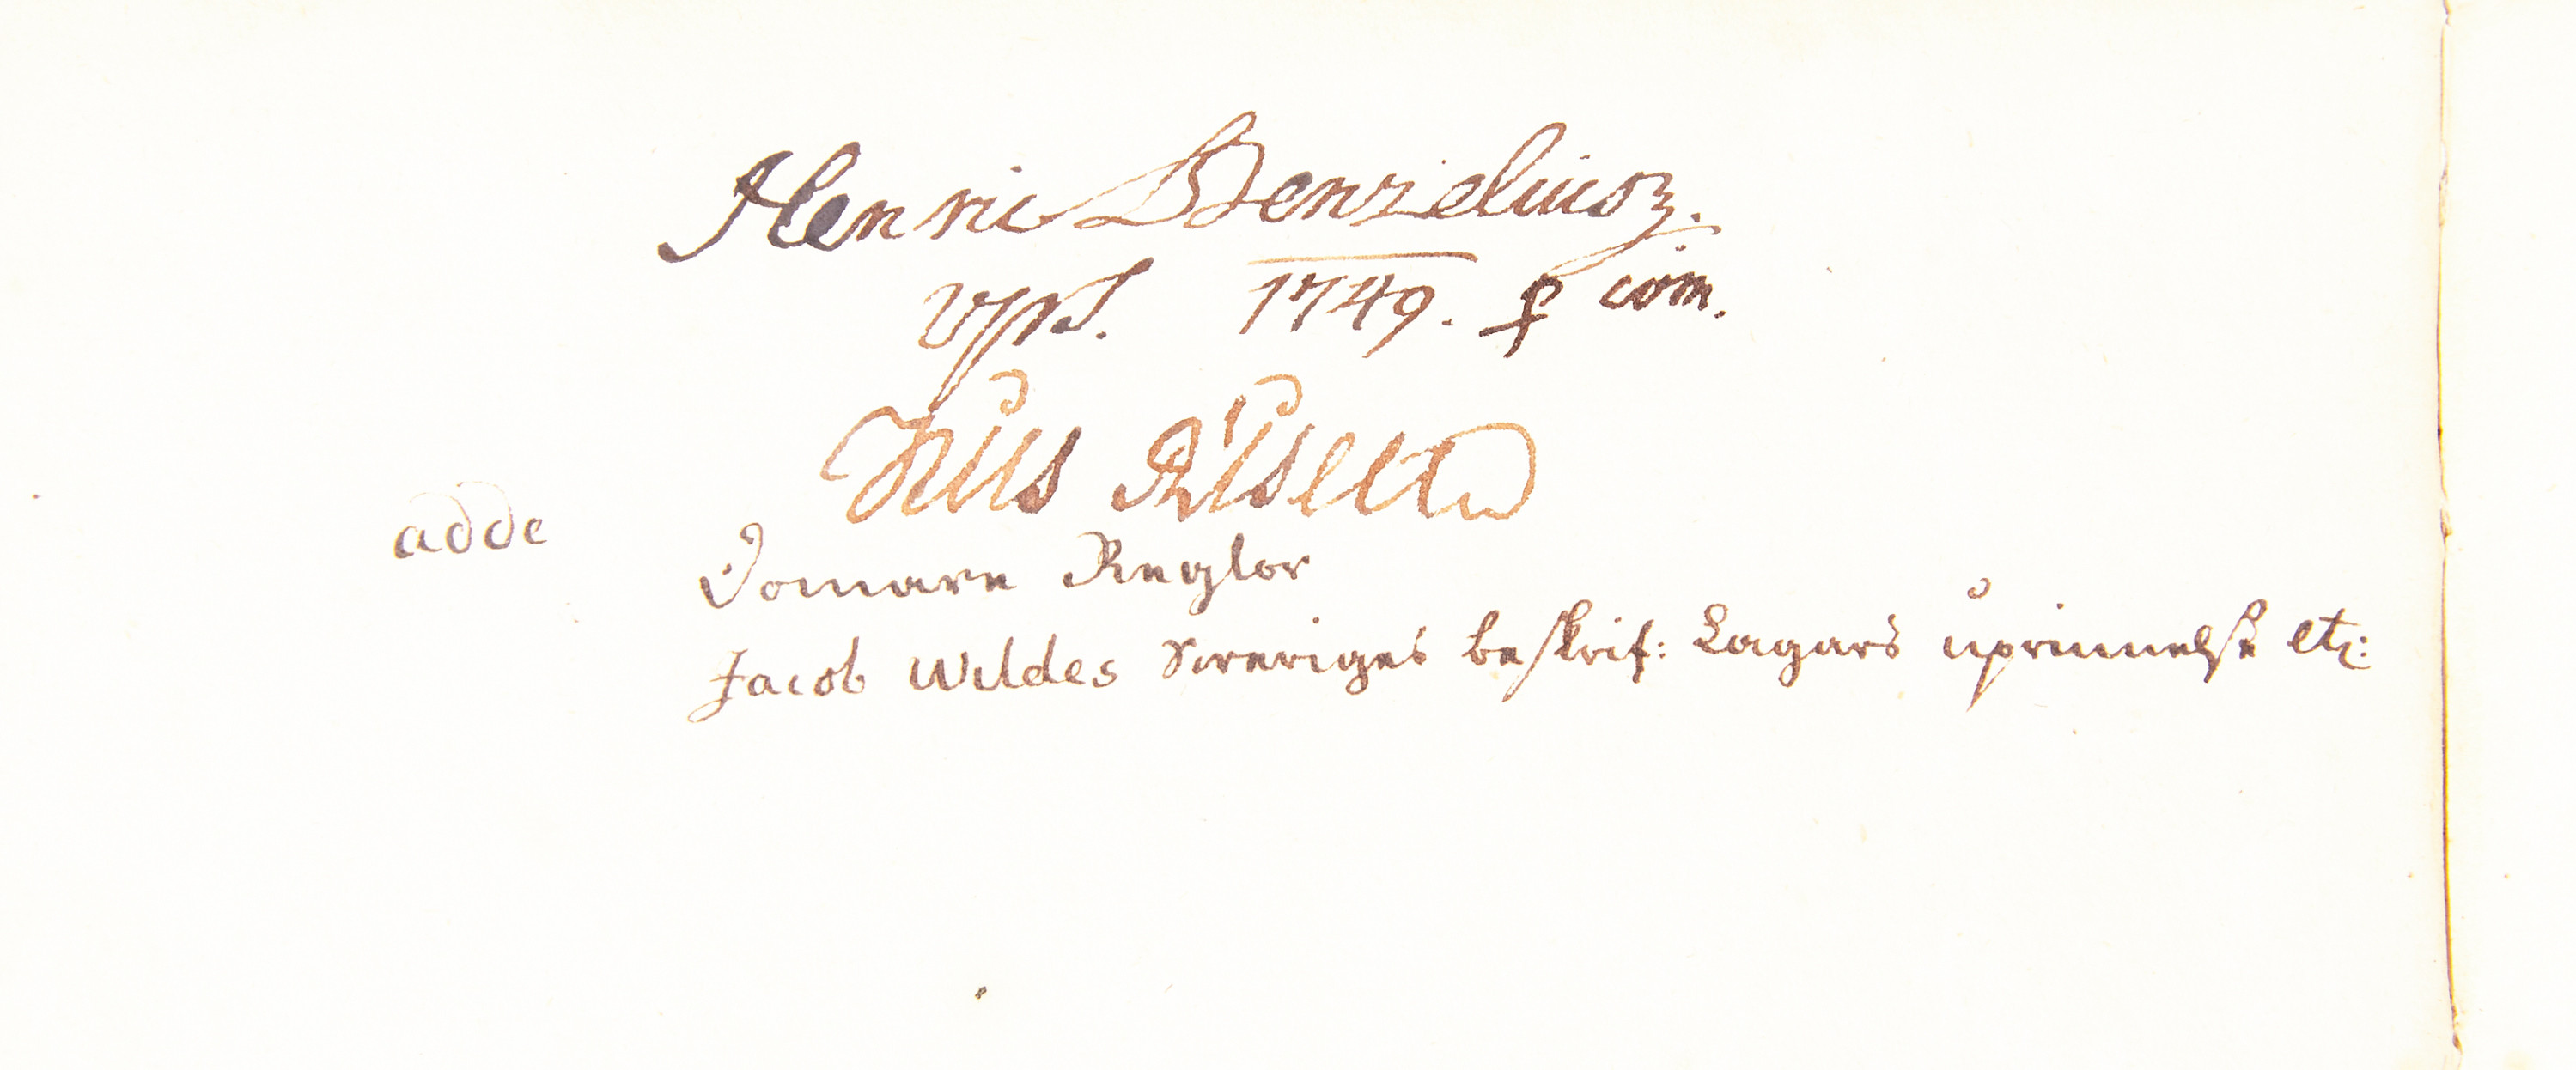 Henric Benzelius.
Ups. 1749. com.
Nils Risell
adde Domare Reglor
Jacob Wildes Sweriges beskrif: Lagars uprinnelse etc: